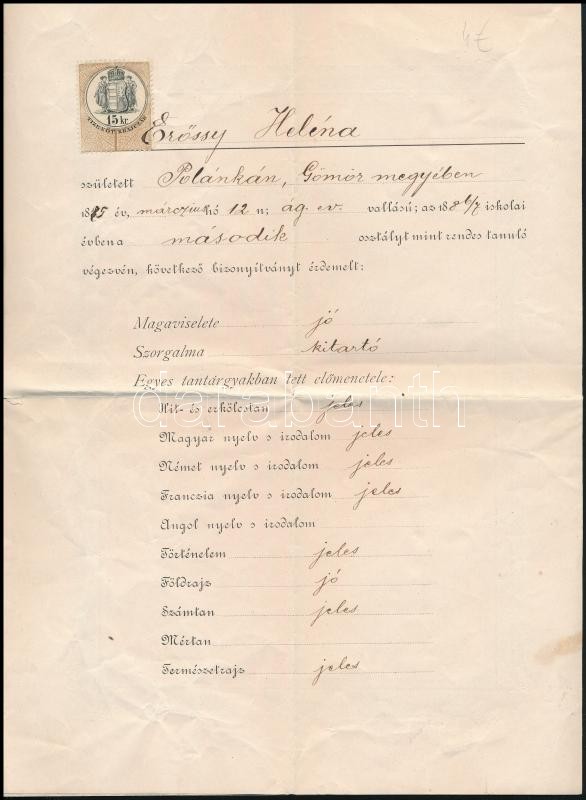 15 kr.
Erőssy Heléna
született Polánkán, Gömör megyében
1875 év, márczius hó 12 n; ág. ev. vallású; az 1886/7 iskolai
évben a második osztályt mint rendes tanuló
végezvén, következő bizonyítványt érdemelt:
Magaviselete jó
Szorgalma kitartó
Egyes tantárgyakban tett előmenetele:
Hit- és erkölcstan jeles
Magyar nyelv s irodalom jeles
Német nyelv s irodalom jeles
Franczia nyelv s irodalom jeles
Angol nyelv s irodalom
Történelem jeles
Földrajz jó
Számtan jeles
Mértan
Természetrajz jeles
darabanth